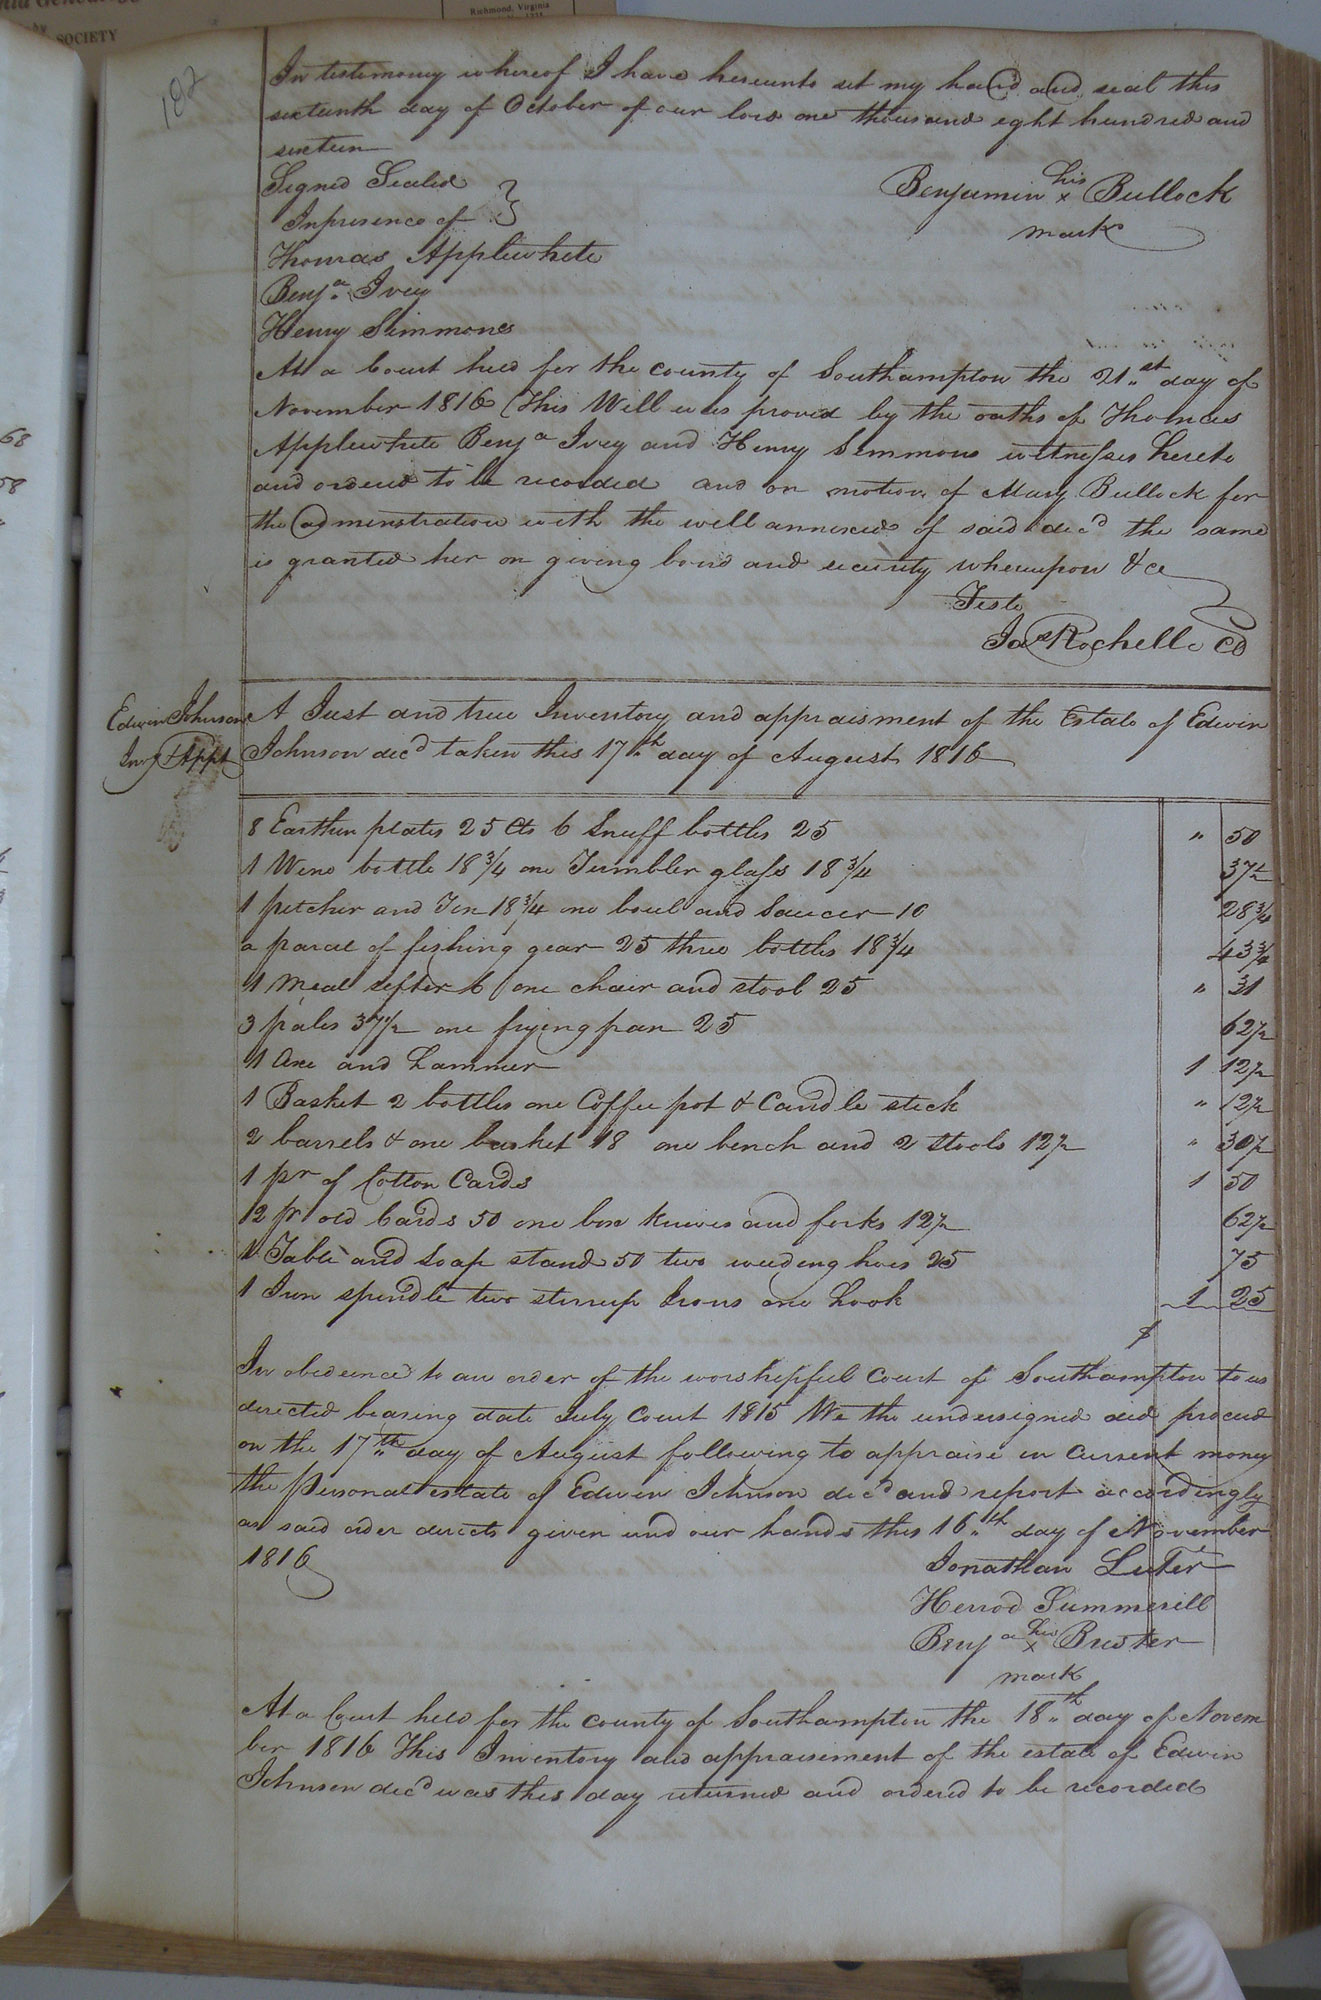 Richmond, Virginia
SOCIETY
182
In testimony whereof I have hereunto set my hand and seal this
sixteenth day of October of our lord one thousand eight hundred and
sixteen
Signed Sealed
Inpresence of
Benjamin his x Bullock
mark
Thomas Applewhite
Benja. Ivey
Henry Simmons
At a Court held for the county of Southampton the 21st day of
November 1816 This Will was proved by the oaths of Thomas
Applewhite Benja Ivey and Henry Simmons witnesses hereto
and ordered to be recorded and on motion of Mary Bullock for
the administration with the will annexed of said decd the same
is granted her on giving bond and security whereupon &ce
Teste
Jas Rochelle CD
Edwin Johnson
Invy & Appt
A Just and true Inventory and appraisment of the Estate of Edwin
Johnson decd taken this 17th day of August 1816
8 Earthen plates 25 Cts 6 Snuff bottles 25 " 50
1 Wine bottle 18 3/4 one Tumbler glass 18 3/4 37 1/2
1 pitcher and Tin 18 3/4 one boul and Saucer 10 28 3/4
a parcel of fishing gear 25 three bottles 18 3/4 43 3/4
1 Meal sifter 6 one chair and stool 25 " 31
3 pales 37 1/2 one frying pan 25 62 1/2
1 Axe and hammer 1 12 1/2
1 Basket 2 bottles one Coffee pot & Candle stick " 12 1/2
2 barrels & one basket 18 one bench and 2 stools 12 1/2 " 30 1/2
1 pr of Cotton Cards 1 50
2 pr old Cards 50 one box knives and forks 12 1/2 62 1/2
1 Table and Soap stand 50 two weeding hoes 25 75
1 Iron spindle two stirrup Irons one hook 1 25
$
In obedience to an order of the worshipfull Court of Southampton to us
directed bearing date July Court 1815 We the undersigned did proceed
on the 17th day of August following to appraise in current money
the Personal estate of Edwin Johnson decd and report accordingly
as said order directs given und our hands this 16th day of November
1816
Jonathan Luter
Herrod Summerill
Benja his x Buster
mark
At a Court held for the county of Southampton the 18th day of Novem
ber 1816 This Inventory and appraisement of the estate of Edwin
Johnson decd was this day returned and ordered to be recorded